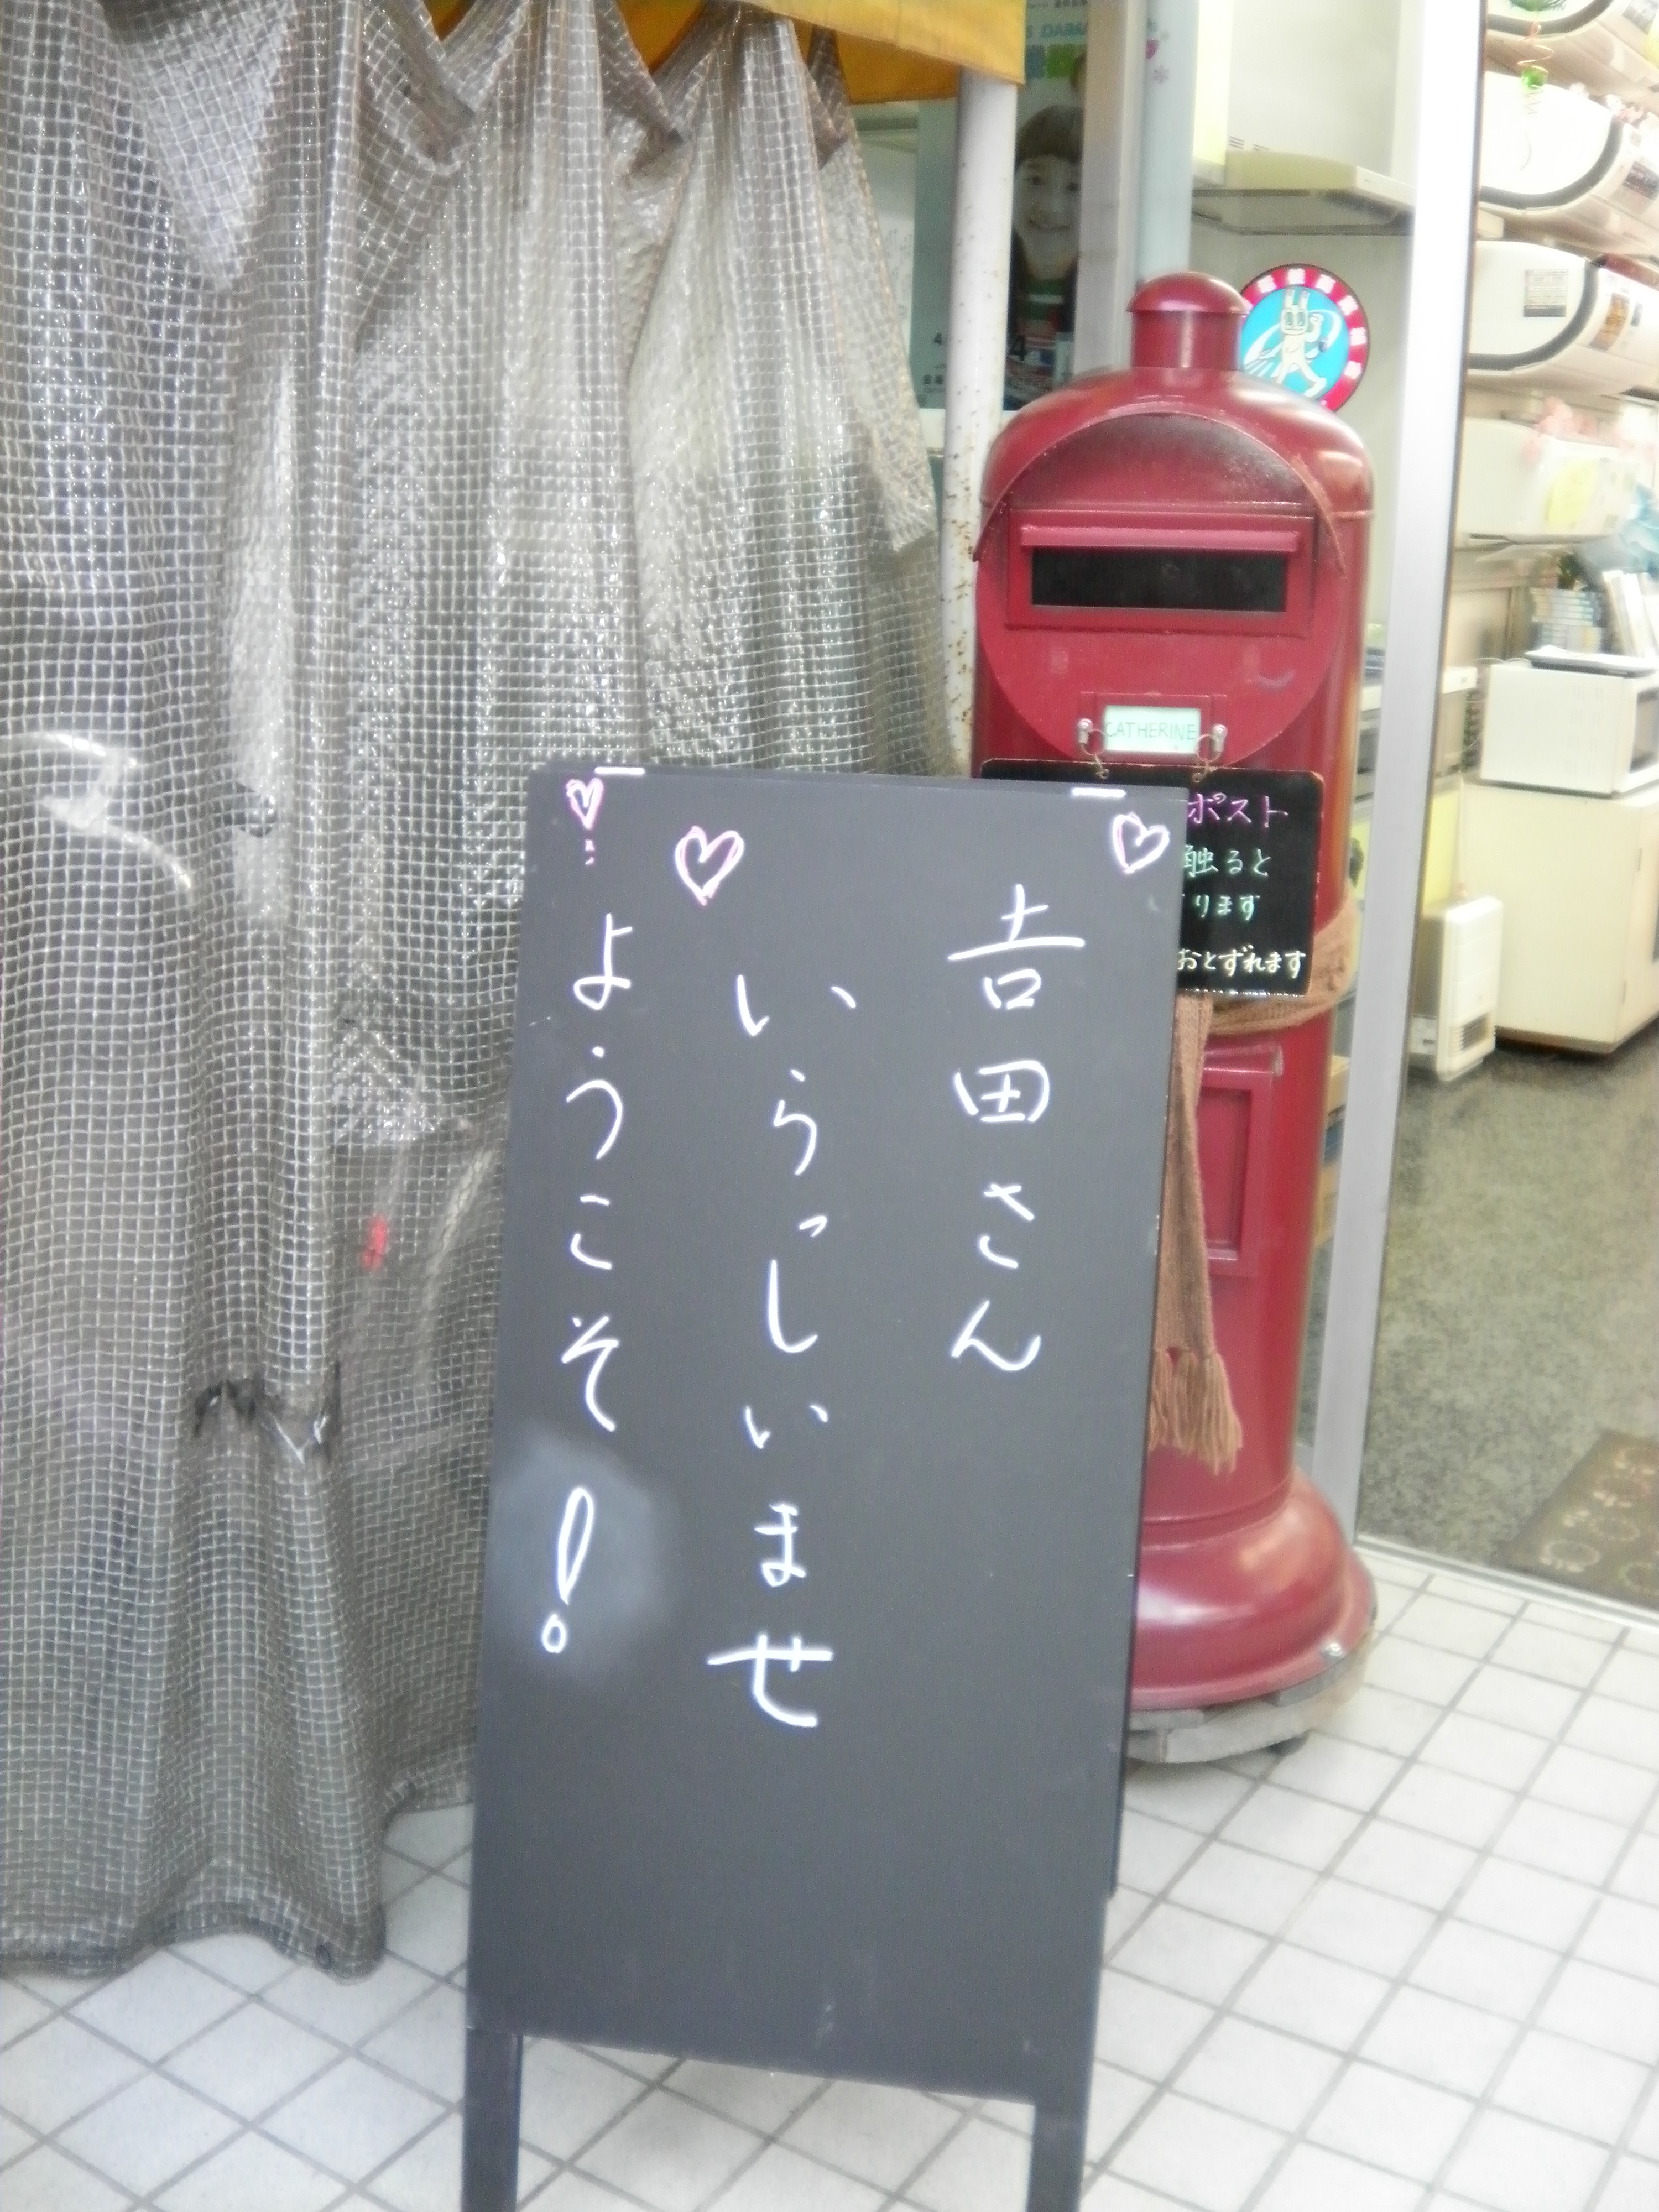 吉田さん
いらっしいませ
ようこそ!
CATHERINE
ポスト
触ると
ります
おとずれます